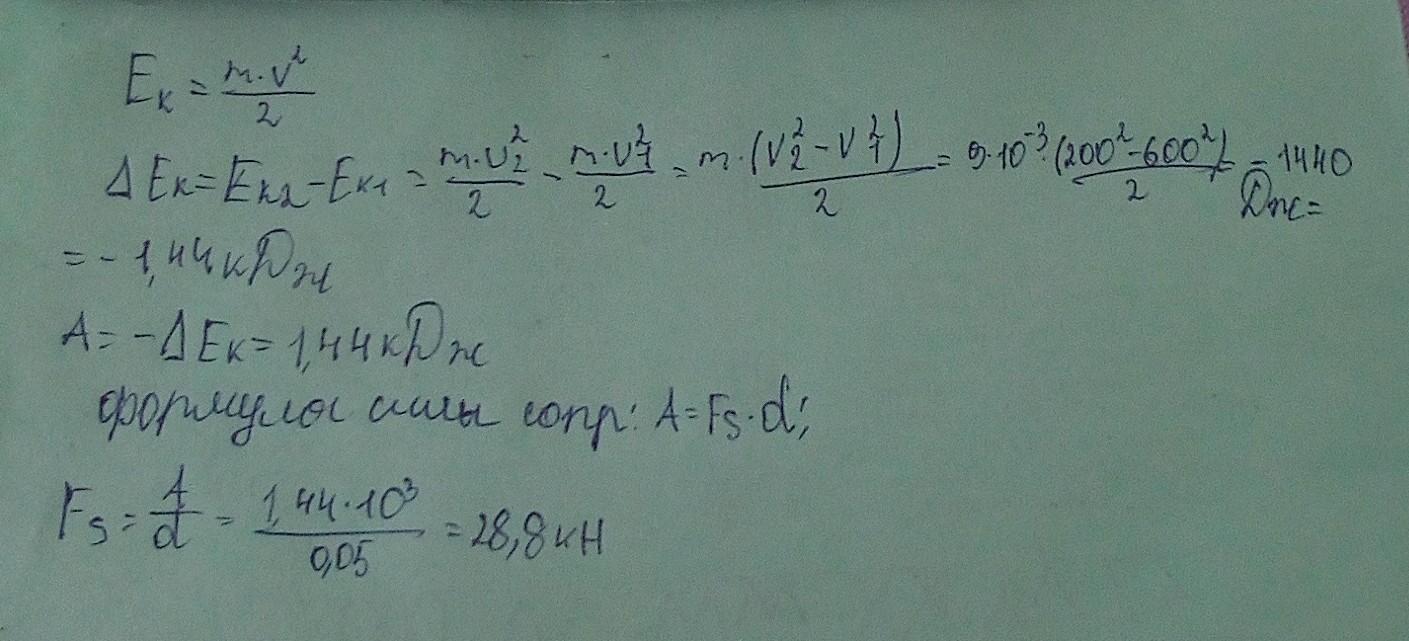 Eк = m·v²/2
ΔEк = Eк2 - Eк1 = m·v₂²/2 - m·v₁²/2 = m·(v₂² - v₁²)/2 = 9·10⁻³·(200² - 600²)/2 = -1440 Дж =
= - 1,44 кДж
A = -ΔEк = 1,44 кДж
формула силы сопр: A = Fs·d;
Fs = A/d = 1,44·10³/0,05 = 28,8 кН